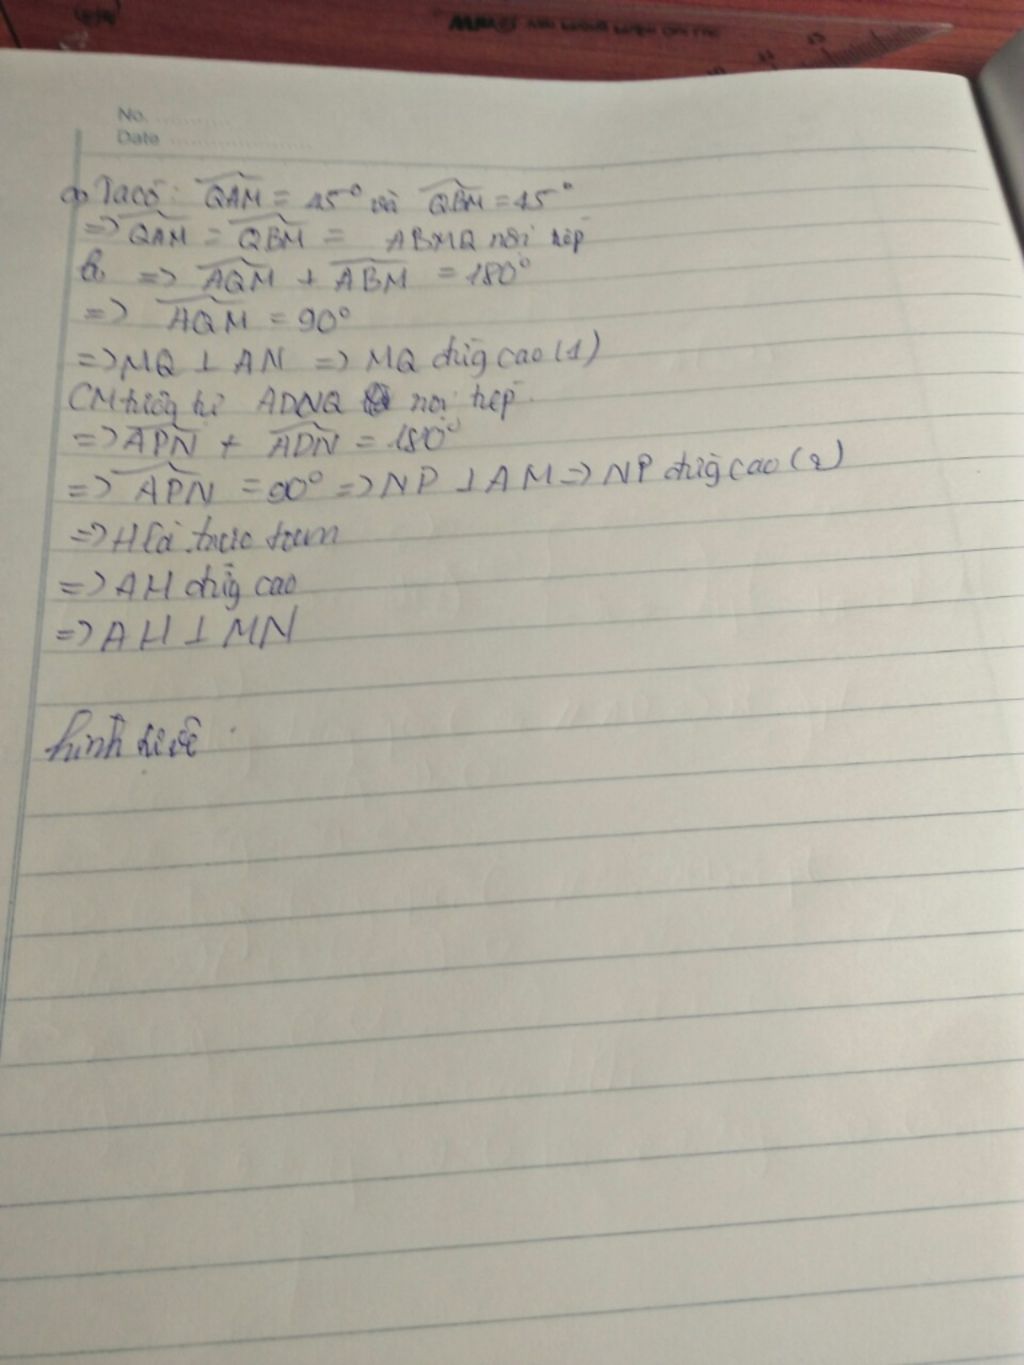 No.
Date
a) Ta có: QAM = 45° và QBM = 45°
=> QAM = QBM = ABMQ nội tiếp
b, => AQM + ABM = 180°
=> AQM = 90°
=> MQ ⊥ AN => MQ đường cao (1)
CM tương tự ADNQ nội tiếp.
=> APN + ADN = 180°
=> APN = 90° => NP ⊥ AM => NP đường cao (2)
=> H là trực tâm
=> AH đường cao
=> AH ⊥ MN
hình tự vẽ